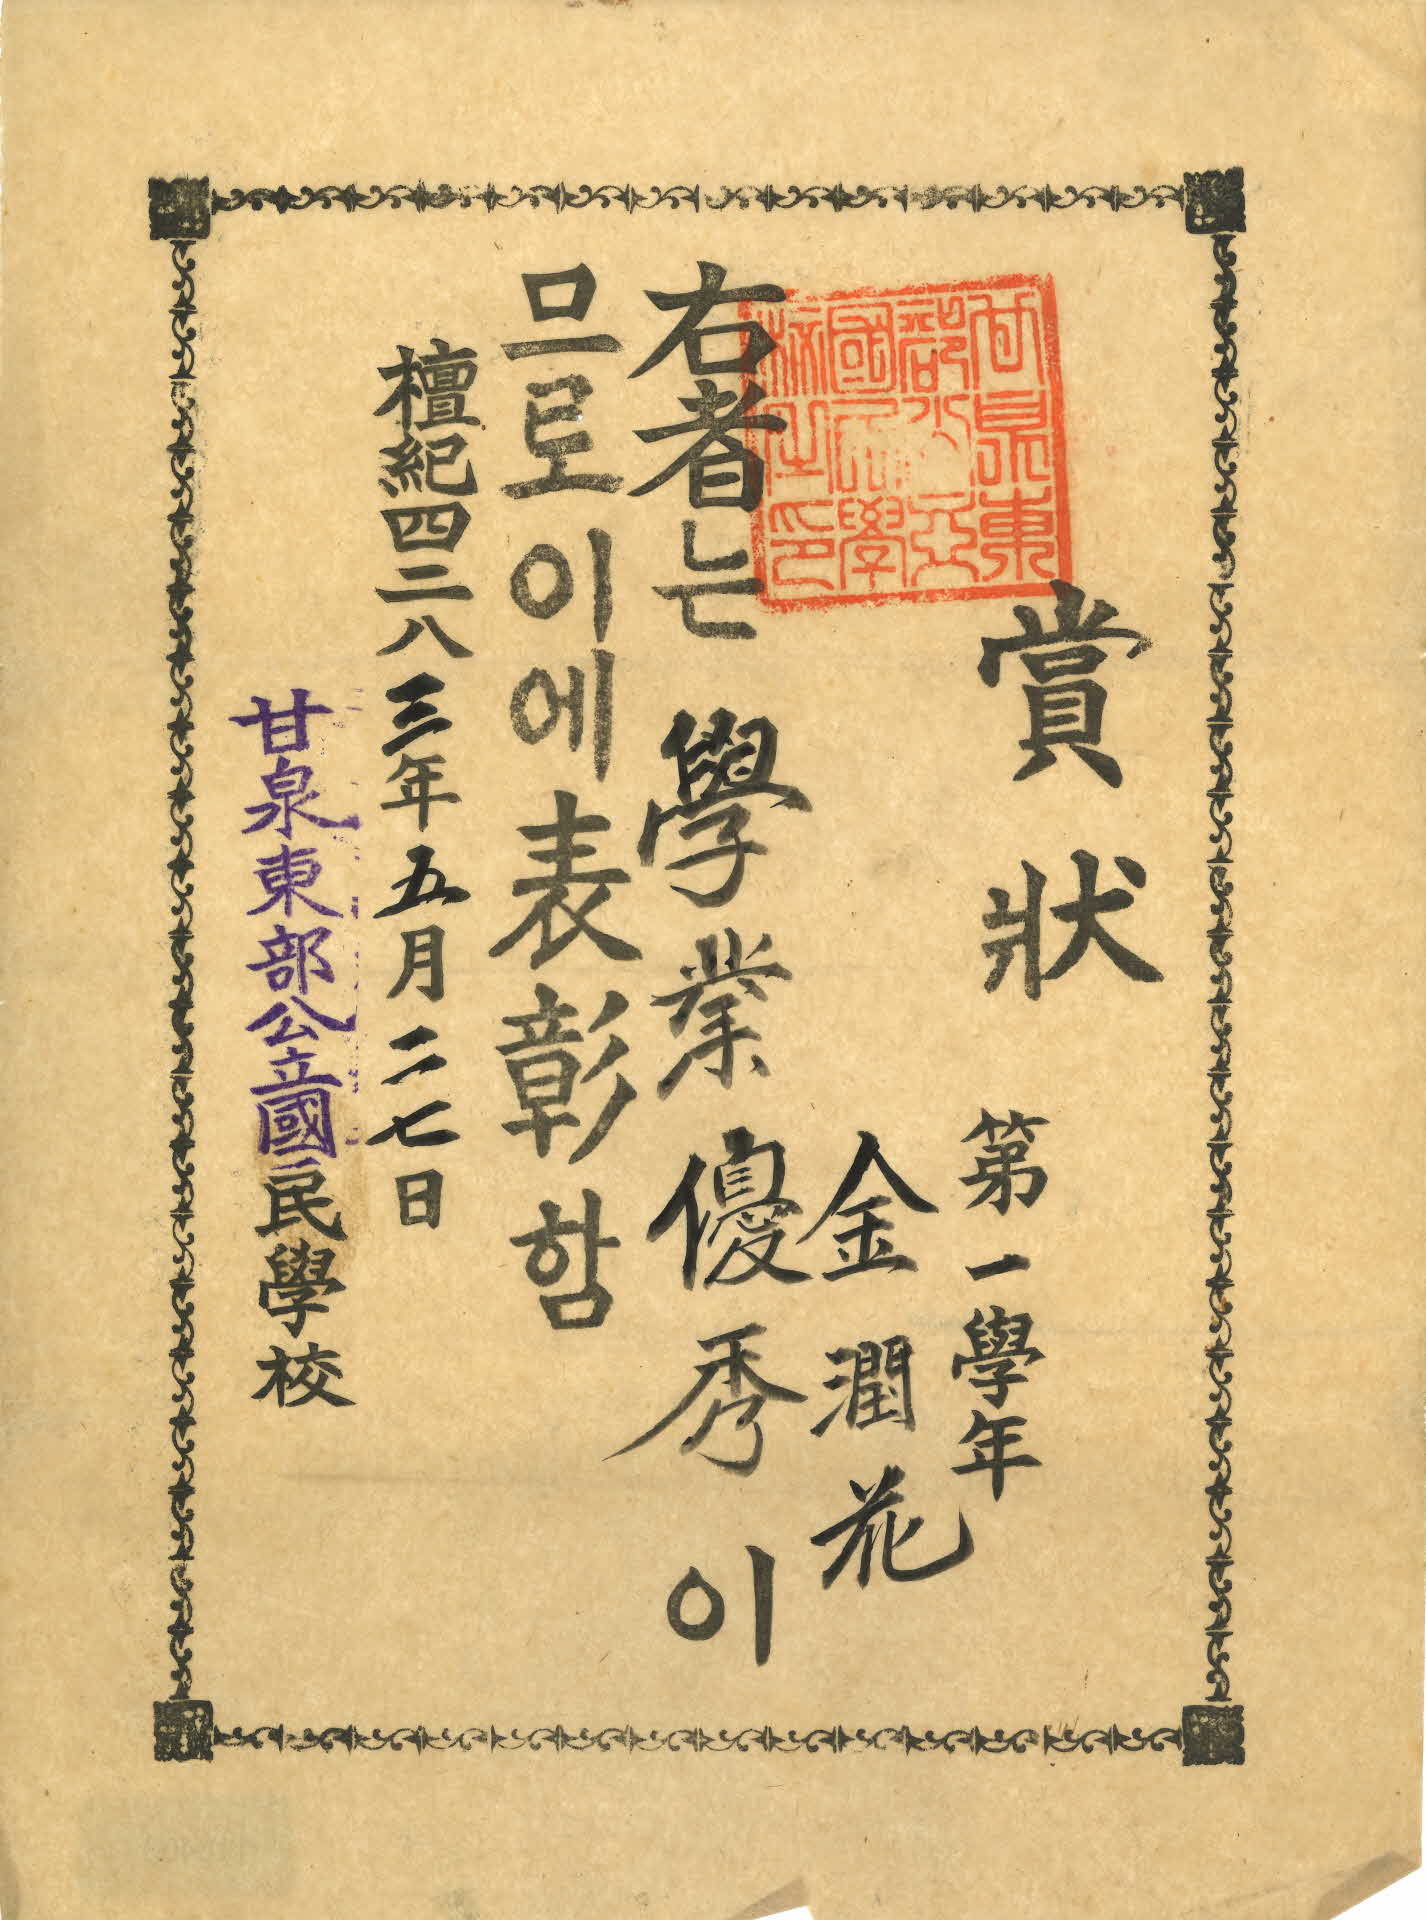 賞狀
第一學年
金潤花
右者는 學業優秀이
므로이에表彰함
檀紀四二八三年五月二七日
甘泉東部公立國民學校
甘泉東
部公立
國民學
校之印